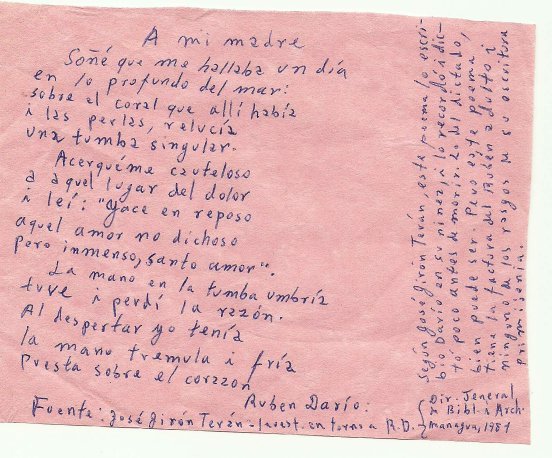 A mi madre
Soñé que me hallaba un día
en lo profundo del mar:
sobre el coral que allí había
i las perlas, relucía
una tumba singular.
Acerquéme cauteloso
a aquel lugar del dolor
i leí: "Yace en reposo
aquel amor no dichoso
pero inmenso, santo amor".
La mano en la tumba umbría
tuve i perdí la razón.
Al despertar yo tenía
la mano tremula i fría
puesta sobre el corazzon
Ruben Darío:
Fuente: José Jirón Terán - Invest. en torno a R.D.
Dir. Jeneral
de Bibl. i Arch.
managua, 1981
Según José Jirón Terán, este poema lo escri-
bió Darío en su niñez, i lo recordó i dic-
tó poco antes de morir. Lo del dictado,
bien puede ser. Pero este poema
tiene la factura del Rubén adulto i
ninguno de los rasgos de su escritura
primisenia.